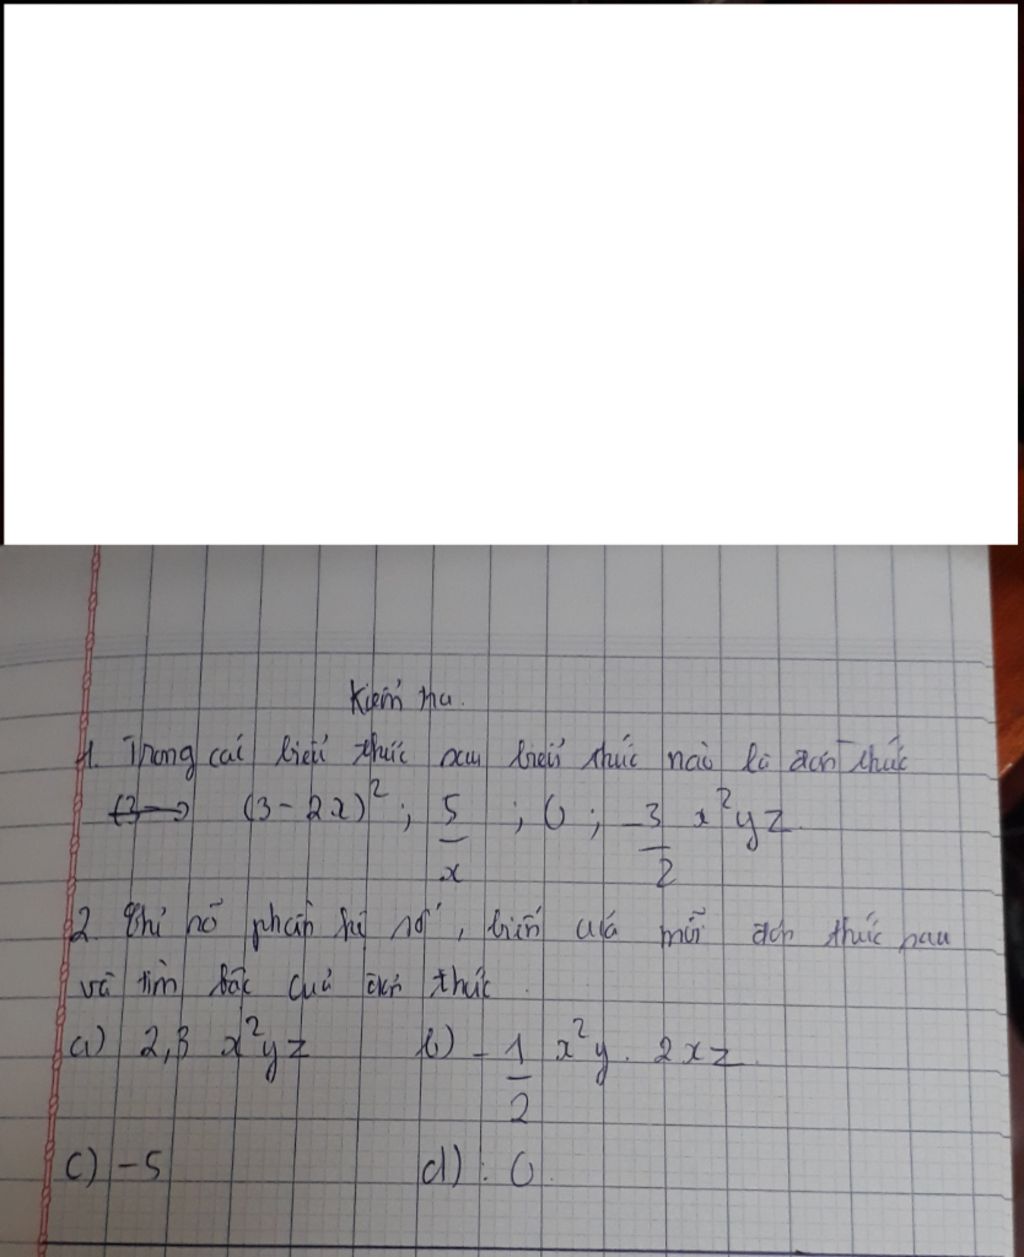 Kiểm tra.
1. Trong các biểu thức sau biểu thức nào là đơn thức
(3 - 2x)² ; 5/x ; 0 ; -3/2 x²yz
2. Chỉ rõ phần hệ số, biến của mỗi đơn thức sau
và tìm bậc của đơn thức.
a) 2,3 x²yz b) -1/2 x²y . 2xz
c) -5 d) : 0.